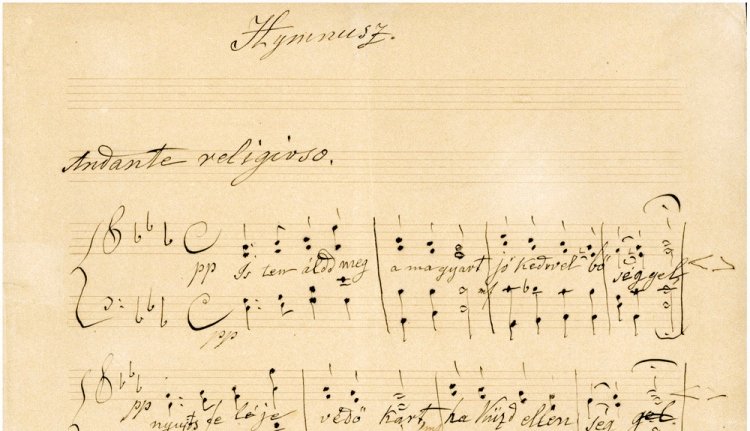 Hymnusz.
Andante religioso.
pp
Is ten áldd meg a magyart jó kedvvel bő séggel
mf
pp
pp
nyujts fe léje védő kart ha küzd ellen ség gel